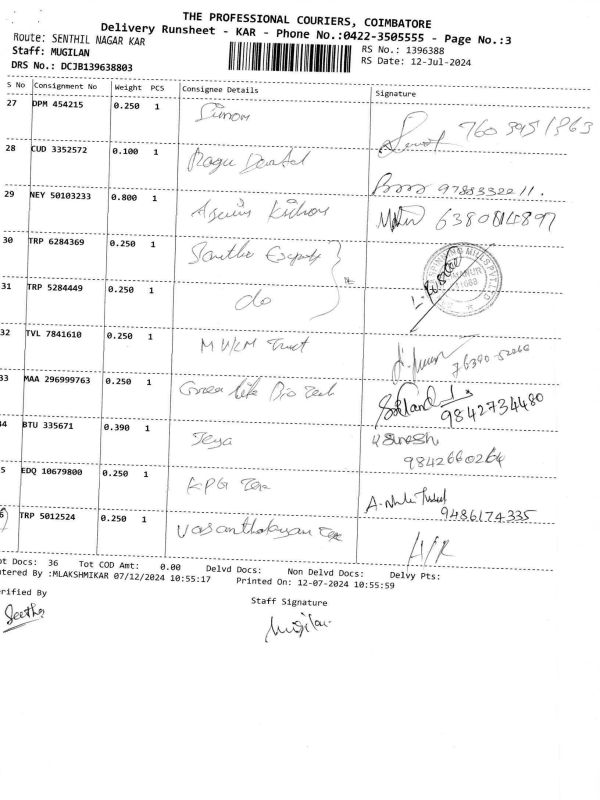 THE PROFESSIONAL COURIERS, COIMBATORE
Delivery Runsheet - KAR - Phone No.:0422-3505555 - Page No.:3
Route: SENTHIL NAGAR KAR
RS No.: 1396388
Staff: MUGILAN
RS Date: 12-Jul-2024
DRS No.: DCJB139638803
S No Consignment No Weight PCS Consignee Details Signature
27 DPM 454215 0.250 1 Simon
28 CUD 3352572 0.100 1 Ragu Dental
29 NEY 50103233 0.800 1 Kishor 6380814897
30 TRP 6284369 0.250 1
31 TRP 5284449 0.250 1 do
32 TVL 7841610 0.250 1 Trust
33 MAA 296999763 0.250 1 Tech 9842734480
34 BTU 335671 0.390 1 Jeya Suresh
9842660264
35 EDQ 10679800 0.250 1 KPG Tex 9486174335
36 TRP 5012524 0.250 1 Tex H/R
ot Docs: 36 Tot COD Amt: 0.00 Delvd Docs: Non Delvd Docs: Delvy Pts:
ntered By :MLAKSHMIKAR 07/12/2024 10:55:17 Printed On: 12-07-2024 10:55:59
erified By
Staff Signature
Mugilan